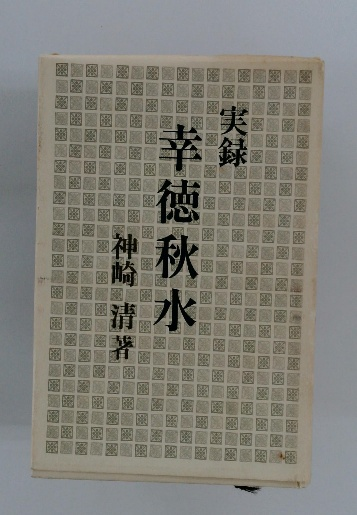 実録
幸徳秋水
神崎 清著